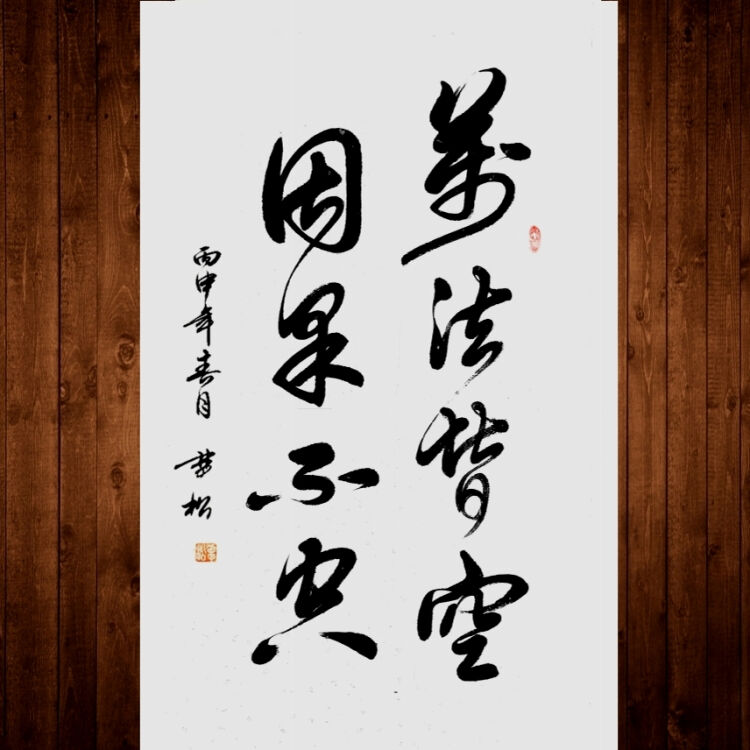 萬法皆空
因果不空
丙申年春月 松